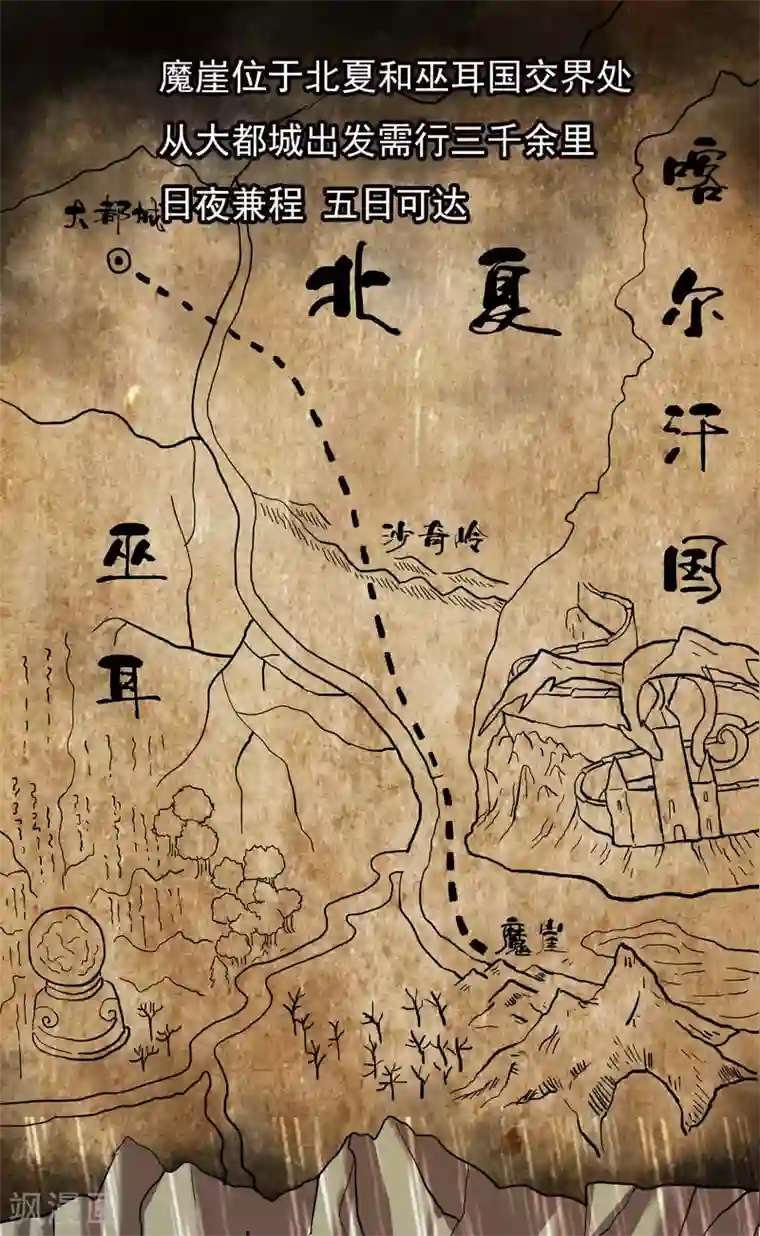 魔崖位于北夏和巫耳国交界处
从大都城出发需行三千余里
日夜兼程 五日可达
大都城
北夏
喀尔汗国
沙奇岭
巫耳
魔崖
飒漫画